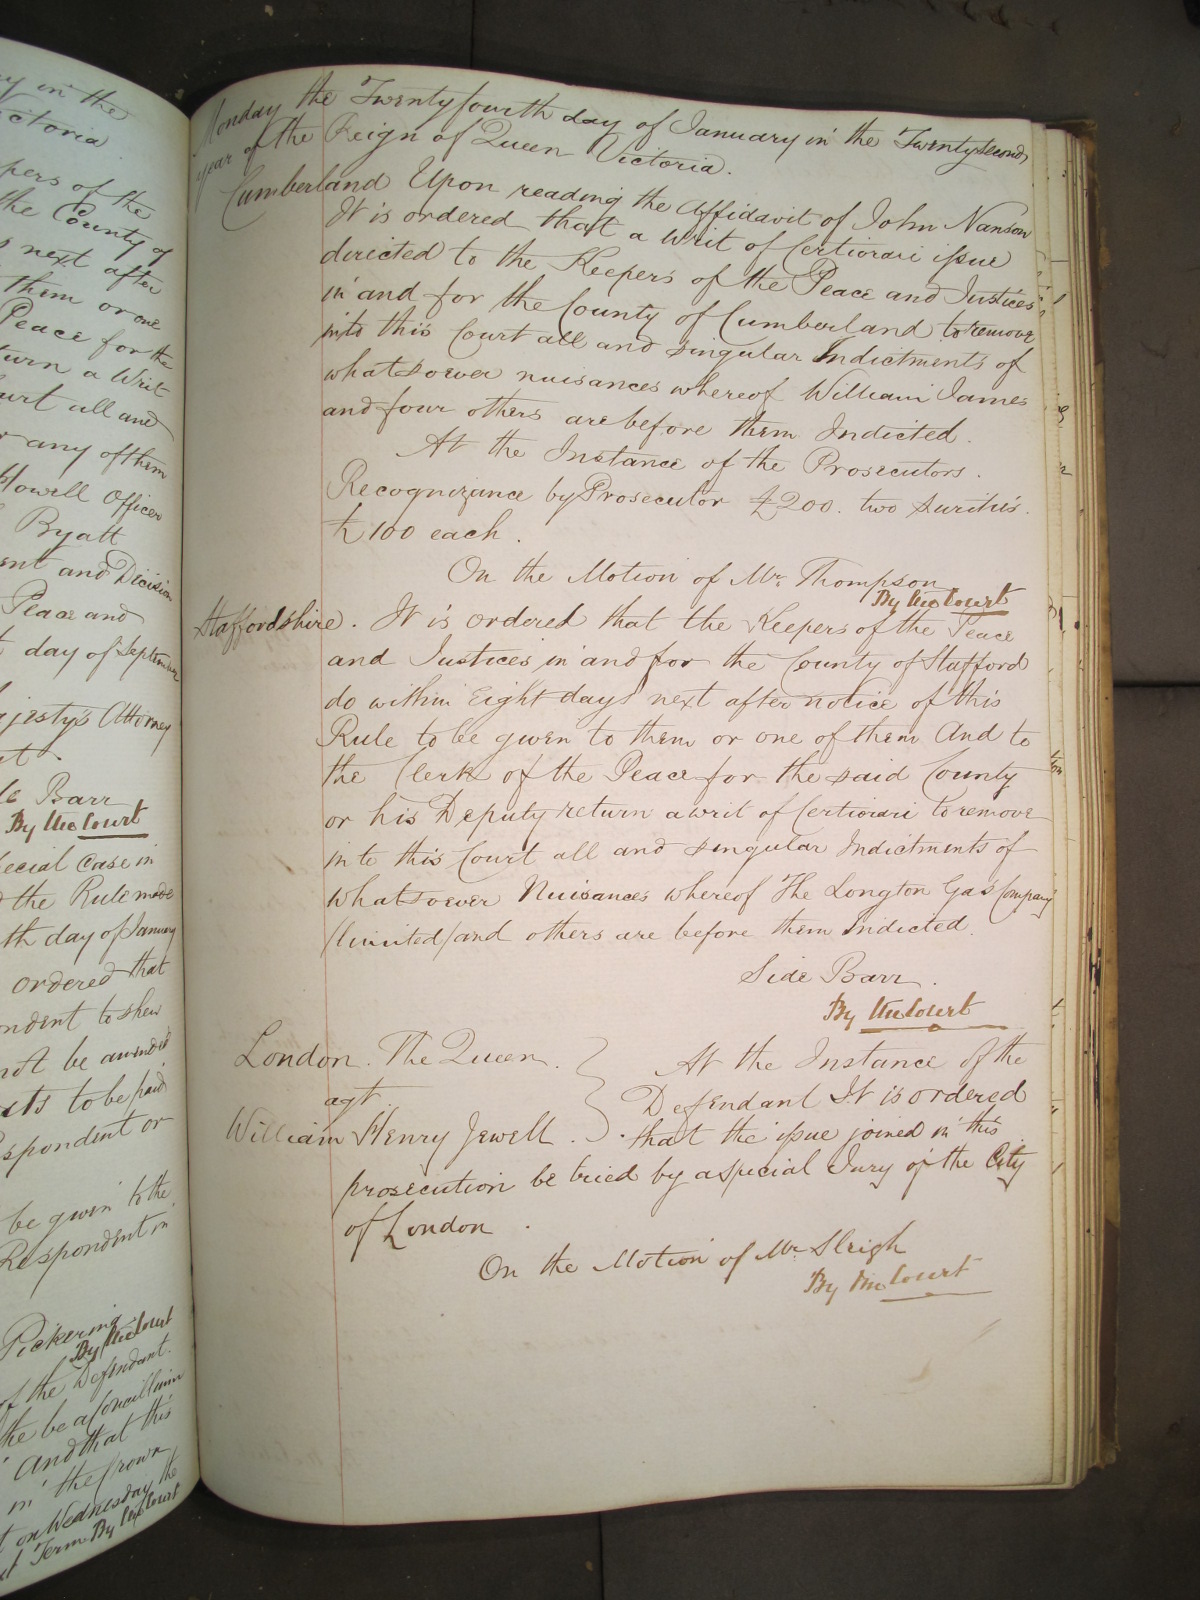 y in the
ictoria
pers of the
the County of
s next after
them or one
Peace for the
turn a Writ
urt all and
r any of them
Howell Officer
Byatt
ent and Decision
Peace and
t day of September
ajesty's Attorney
nt.
le Barr
By the Court
pecial Case in
d the Rule made
th day of January
ordered that
ndent to shew
not be amended
sts to be paid
spondent or
be given to the
Respondent in
Pickering
By the Court
of the Defendant.
the be a
And that this
in the Crown
t on Wednesday the
xt Term By the Court
Monday the Twenty fourth day of January in the Twenty second
year of the Reign of Queen Victoria.
Cumberland Upon reading the Affidavit of John Nanson
It is ordered that a Writ of Certiorari issue
directed to the Keepers of the Peace and Justices
in and for the County of Cumberland to remove
into this Court all and singular Indictments of
whatsoever nuisances whereof William James
and four others are before them Indicted.
At the Instance of the Prosecutors.
Recognizance by Prosecutor £200. two surities.
£100 each.
On the Motion of Mr. Thompson
By the Court
Staffordshire. It is ordered that the Keepers of the Peace
and Justices in and for the County of Stafford
do within Eight days next after notice of this
Rule to be given to them or one of them And to
the Clerk of the Peace for the said County
or his Deputy return a writ of Certiorari to remove
into this Court all and singular Indictments of
whatsoever Nuisances whereof The Longton Gas Company
(limited) and others are before them Indicted.
Side Barr.
By the Court
London. The Queen.
agt.
William Henry Jewell.
At the Instance of the
Defendant It is ordered
that the issue joined in this
prosecution be tried by a special Jury of the City
of London.
On the Motion of Mr Sleigh
By the Court